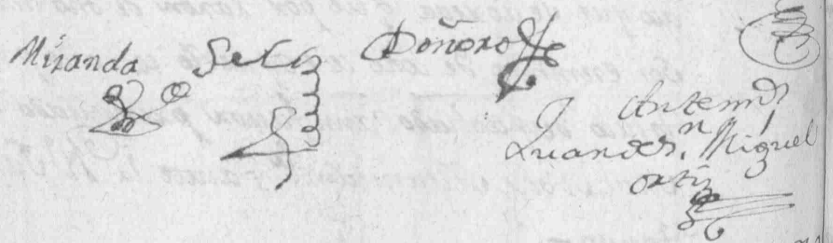 Miranda Seti Doñoro
Antemi
Juan de Sn. Miguel
ortiz